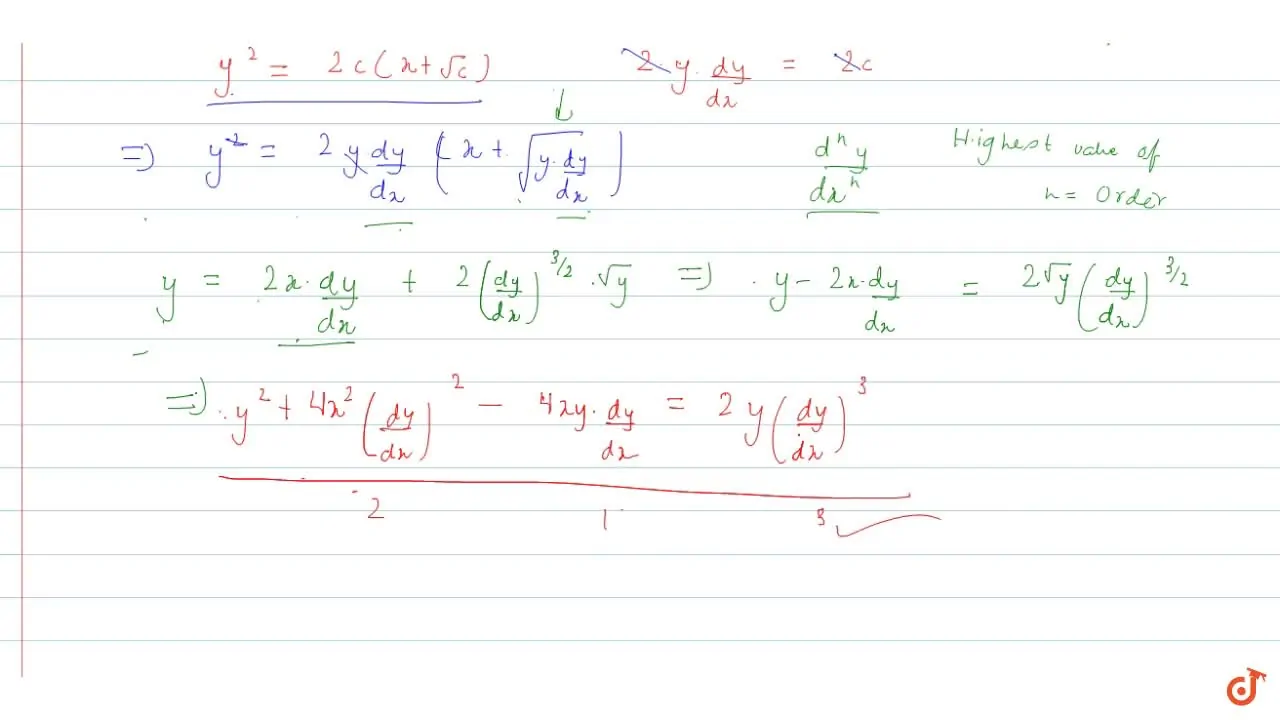 y² = 2c(x+√c) 2·y·dy/dx = 2c
=) y² = 2y dy/dx (x + √(y·dy/dx)) dⁿy/dxⁿ Highest value of
n = Order
y = 2x·dy/dx + 2(dy/dx)^3/2 ·√y =) y - 2x·dy/dx = 2√y (dy/dx)^3/2
=) y² + 4x² (dy/dx)² - 4xy·dy/dx = 2y (dy/dx)³
2 1 3